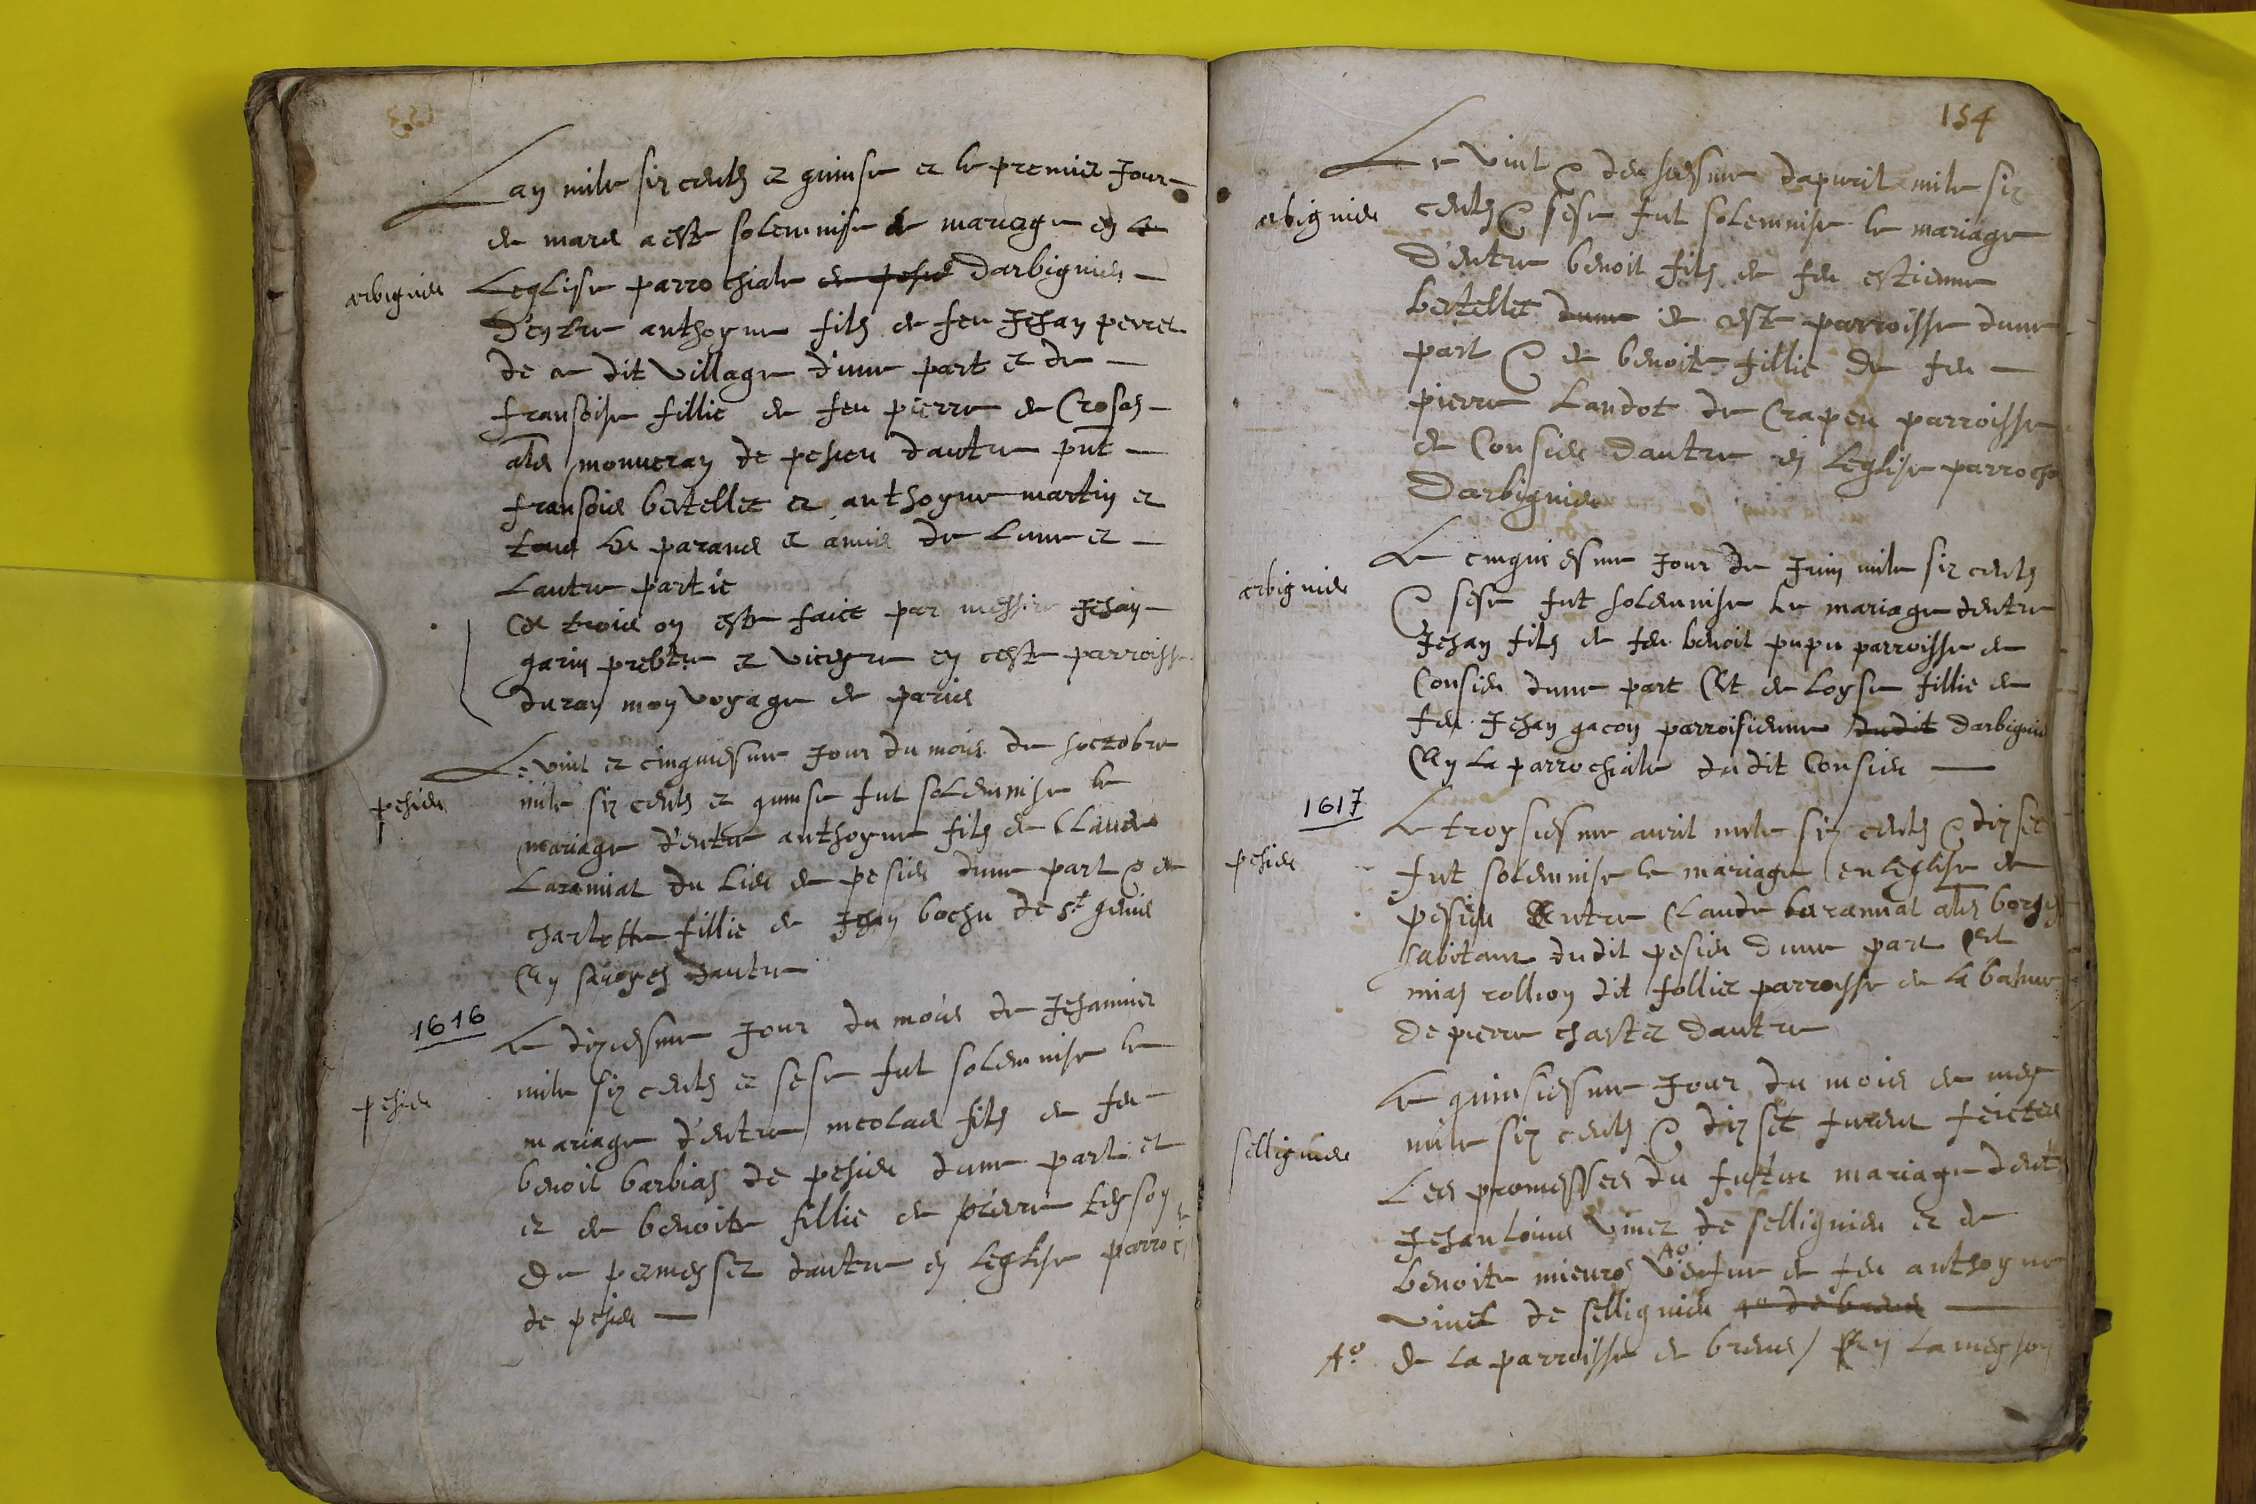 Lan mile six cents et quinse et le premier Jour
de mars a este solemnise le mariage en le
arbignieu
Leglise parrochiale de pesieu Darbignieu
D'entre anthoyne fils de feu Jehan perret
de ce dit village d'une part et de
fransoise fillie de feu pierre de Crosas
als monueray de pesieu dautre pnt
fransois bertellet et anthoyne martin et
tous les parans et amis de Lune et
Lautre partie
Ce trois on este faict par messire Jehan
garin prebtre et viceyre en ceste parroisse
duran mon voyage de paris
Le vint et cinquiesme Jour du mois de hoctobre
pesieu
mile six cents et quinse fut solemnise le
mariage d'entre anthoyne fils de Claude
du lieu de pesieu dune part & de
charlotte fillie de Jehan bochu de st genis
En savoyes dautre
1616
Le diziesme Jour du mois de Jehanvier
pesieu
mile six cents et sese fut solemnise le
mariage d'entre nicolas fils de feu
benoit barbias de pesieu dune part et
et de benoite fillie de pierre teyson
De permeyset dautre en Leglise parroc
de pesieu
154
Le vint & deusiesme dapuril mile six
arbignieu
cents & sese fut solemnise le mariage
D'entre benoit fils de feu estienne
bertellet dune de ceste parroisse dune
part & de benoite fillie de feu
pierre Landot de Crapeu parroisse
de Consieu dautre en Leglise parrochi
Darbignieu
Le cinquiesme Jour de Juin mile six cents
arbignieu
& sese fut solemnise le mariage dentre
Jehan fils de feu benoit pupu parroisse de
Consieu dune part Et de Loyse fillie de
feu Jehan gacon parroisienne dudit darbignieu
En la parrochiale dudit Consieu
1617
Le troysiesme avril mile six cents & dixset
pesieu
fut solemnise le mariage en leglise de
pesieu Entre Claude als borgey
habitant dudit pesieu dune part Et
mias rollion dit follier parroisse de la balme
De pierre chastet dautre
Le quinsiesme Jour du mois de mey
mile six cents & dixset furent feictes
sellignieu
Les promesses du futur mariage dent
Jehan louis vinet de sellignieu et de
Ao
benoite vefue de feu anthoyne
vinet de sellignieu de brens
Ao. de la parroisse de brens / En la meyson